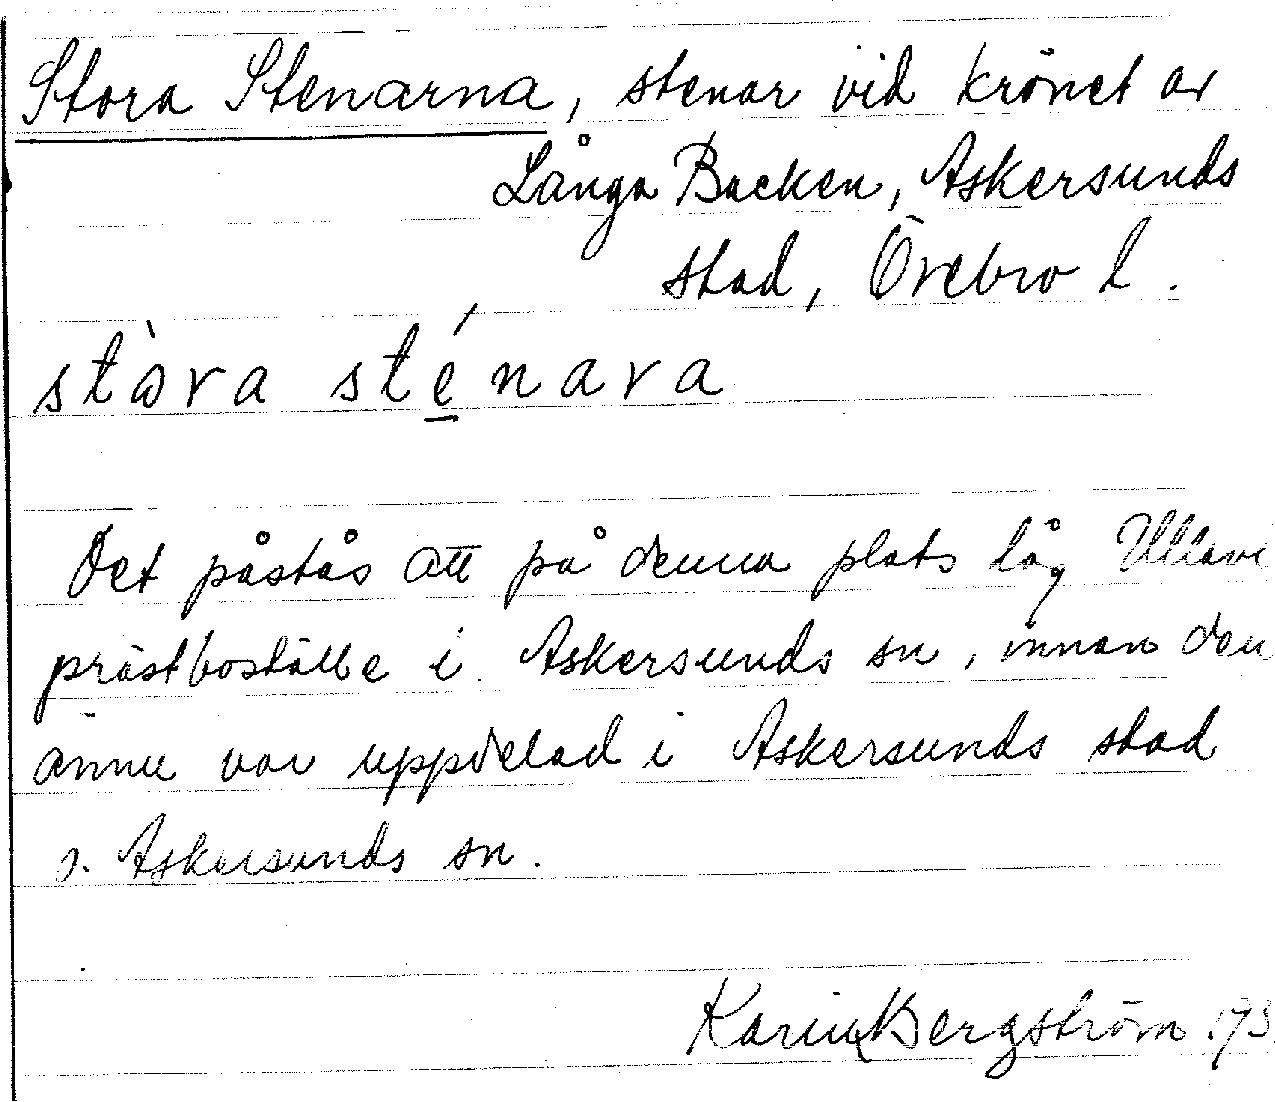 Stora Stenarna, stenar vid krönet av
Långa Backen, Askersunds
stad, Örebro l.
stòra sténara
Det påstås att på denna plats låg Ullavi
prästboställe i Askersunds sn, innan den
ännu var uppdelad i Askersunds stad
o. Askersunds sn.
Karin Bergström 193